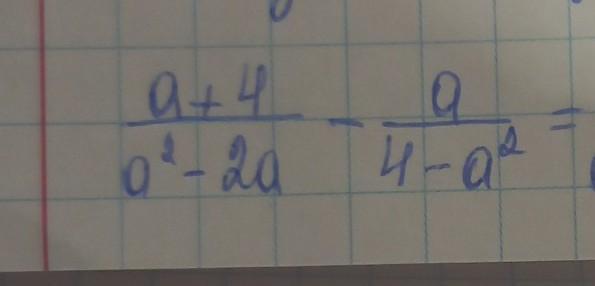 (a+4)/(a²-2a) - a/(4-a²) =